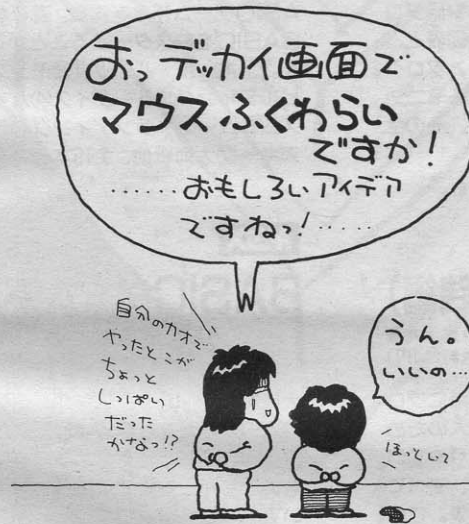 おっデッカイ画面で
マウスふくわらい
ですか!
……おもしろいアイデア
ですねっ!……
自分のカオで
やったとこが
ちょっと
しっぱい
だった
かなっ!?
うん。
いいの…
ほっといて